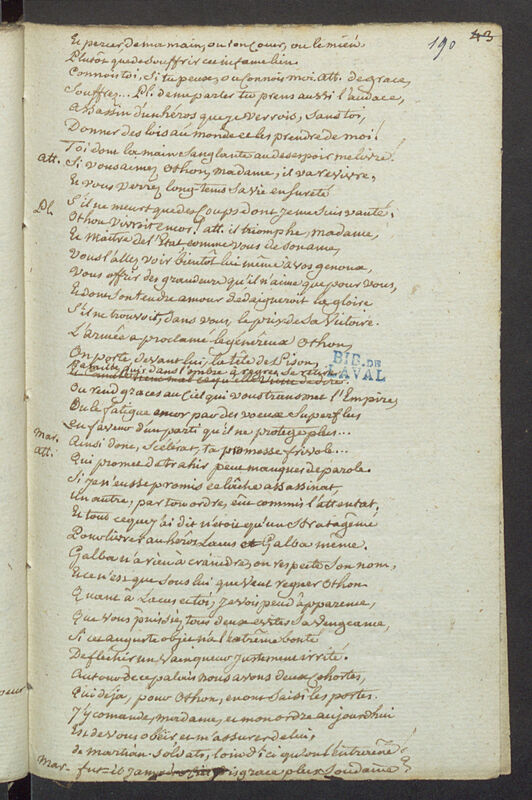 43
190
Et percer, de ma main, ou ton cœur, ou le mien
Plutôt que de souffrir cet infame lien
Connois toi, si tu peux, ou connois moi. Att. de grace,
Souffrez... Pl. de me parler tu prens aussi l'audace,
Assassin d'un héros que je verrois, sans toi,
Donner des lois au monde et les prendre de moi!
Toi dont la main sanglante au desespoir me livre!
Att. Si vous aimez Othon, madame, il va revivre,
Et vous verrez long-tems sa vie en sureté
S'il ne meurt que des coups dont je me suis vanté.
Pl. Othon vivroit encor! att. il triomphe, madame,
Et maître de l'Etat, comme vous de son ame,
Vous l'allez voir bientôt lui même à vos genoux,
Vous offrir des grandeurs qu'il n'aime que pour vous,
Et dont son tendre amour dedaigneroit la gloire
S'il ne trouvoit, dans vous, le prix de sa victoire.
L'armée a proclamé le généreux Othon,
On porte devant lui, la tête de Pison,
Camille qui dans l'ombre à
Ou rend graces au Ciel qui vous transmet l'Empire,
Ou le fatigue encor par des vœux superflus
En faveur d'un parti qu'il ne protege plus...
Mar. Ainsi donc, scélérat, ta promesse frivole...
Att. Qui promet de trahir peut manquer de parole.
Si je n'eusse promis ce lâche assassinat,
Un autre, par ton ordre, eut commis l'attentat,
Et tout ce que j'ai dit n'etoit qu'un stratagême
Pour livrer au héros Lacus et Galba même.
Galba n'a rien à craindre, on respecte son nom,
Et ce n'est que sous lui que veut regner Othon
Quant à Lacus et toi, je vois peu d'apparence,
Que vous puissiez tous deux eviter sa vengeance,
Si cet auguste objet n'a l'extrême bonté
De flêchir un vainqueur justement irrité.
Autour de ce palais nous avons deux cohortes,
Qui deja, pour Othon, en ont saisi les portes.
J'y comande, madame, et mon ordre aujourdhui
Est de vous obéir et m'assurer de lui
de martian soldats, loin d'ici qu'on l'entraine!
Mar. fut-il jamais disgrace plus soudaine?
BIB. DE
LAVAL